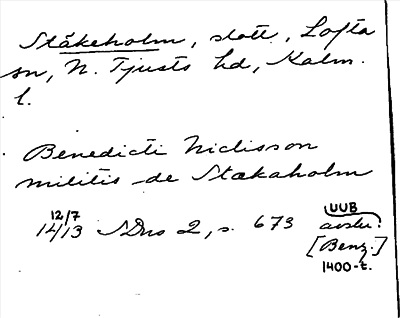 Stäkeholm, slott, Lofta
sn, N. Tjusts hd, Kalm.
l.
Benedicti Niclisson
militis de Stækaholm
12/7 UUB
1413 SDns 2, s. 673 avskr.
[Benz.]
1400-t.